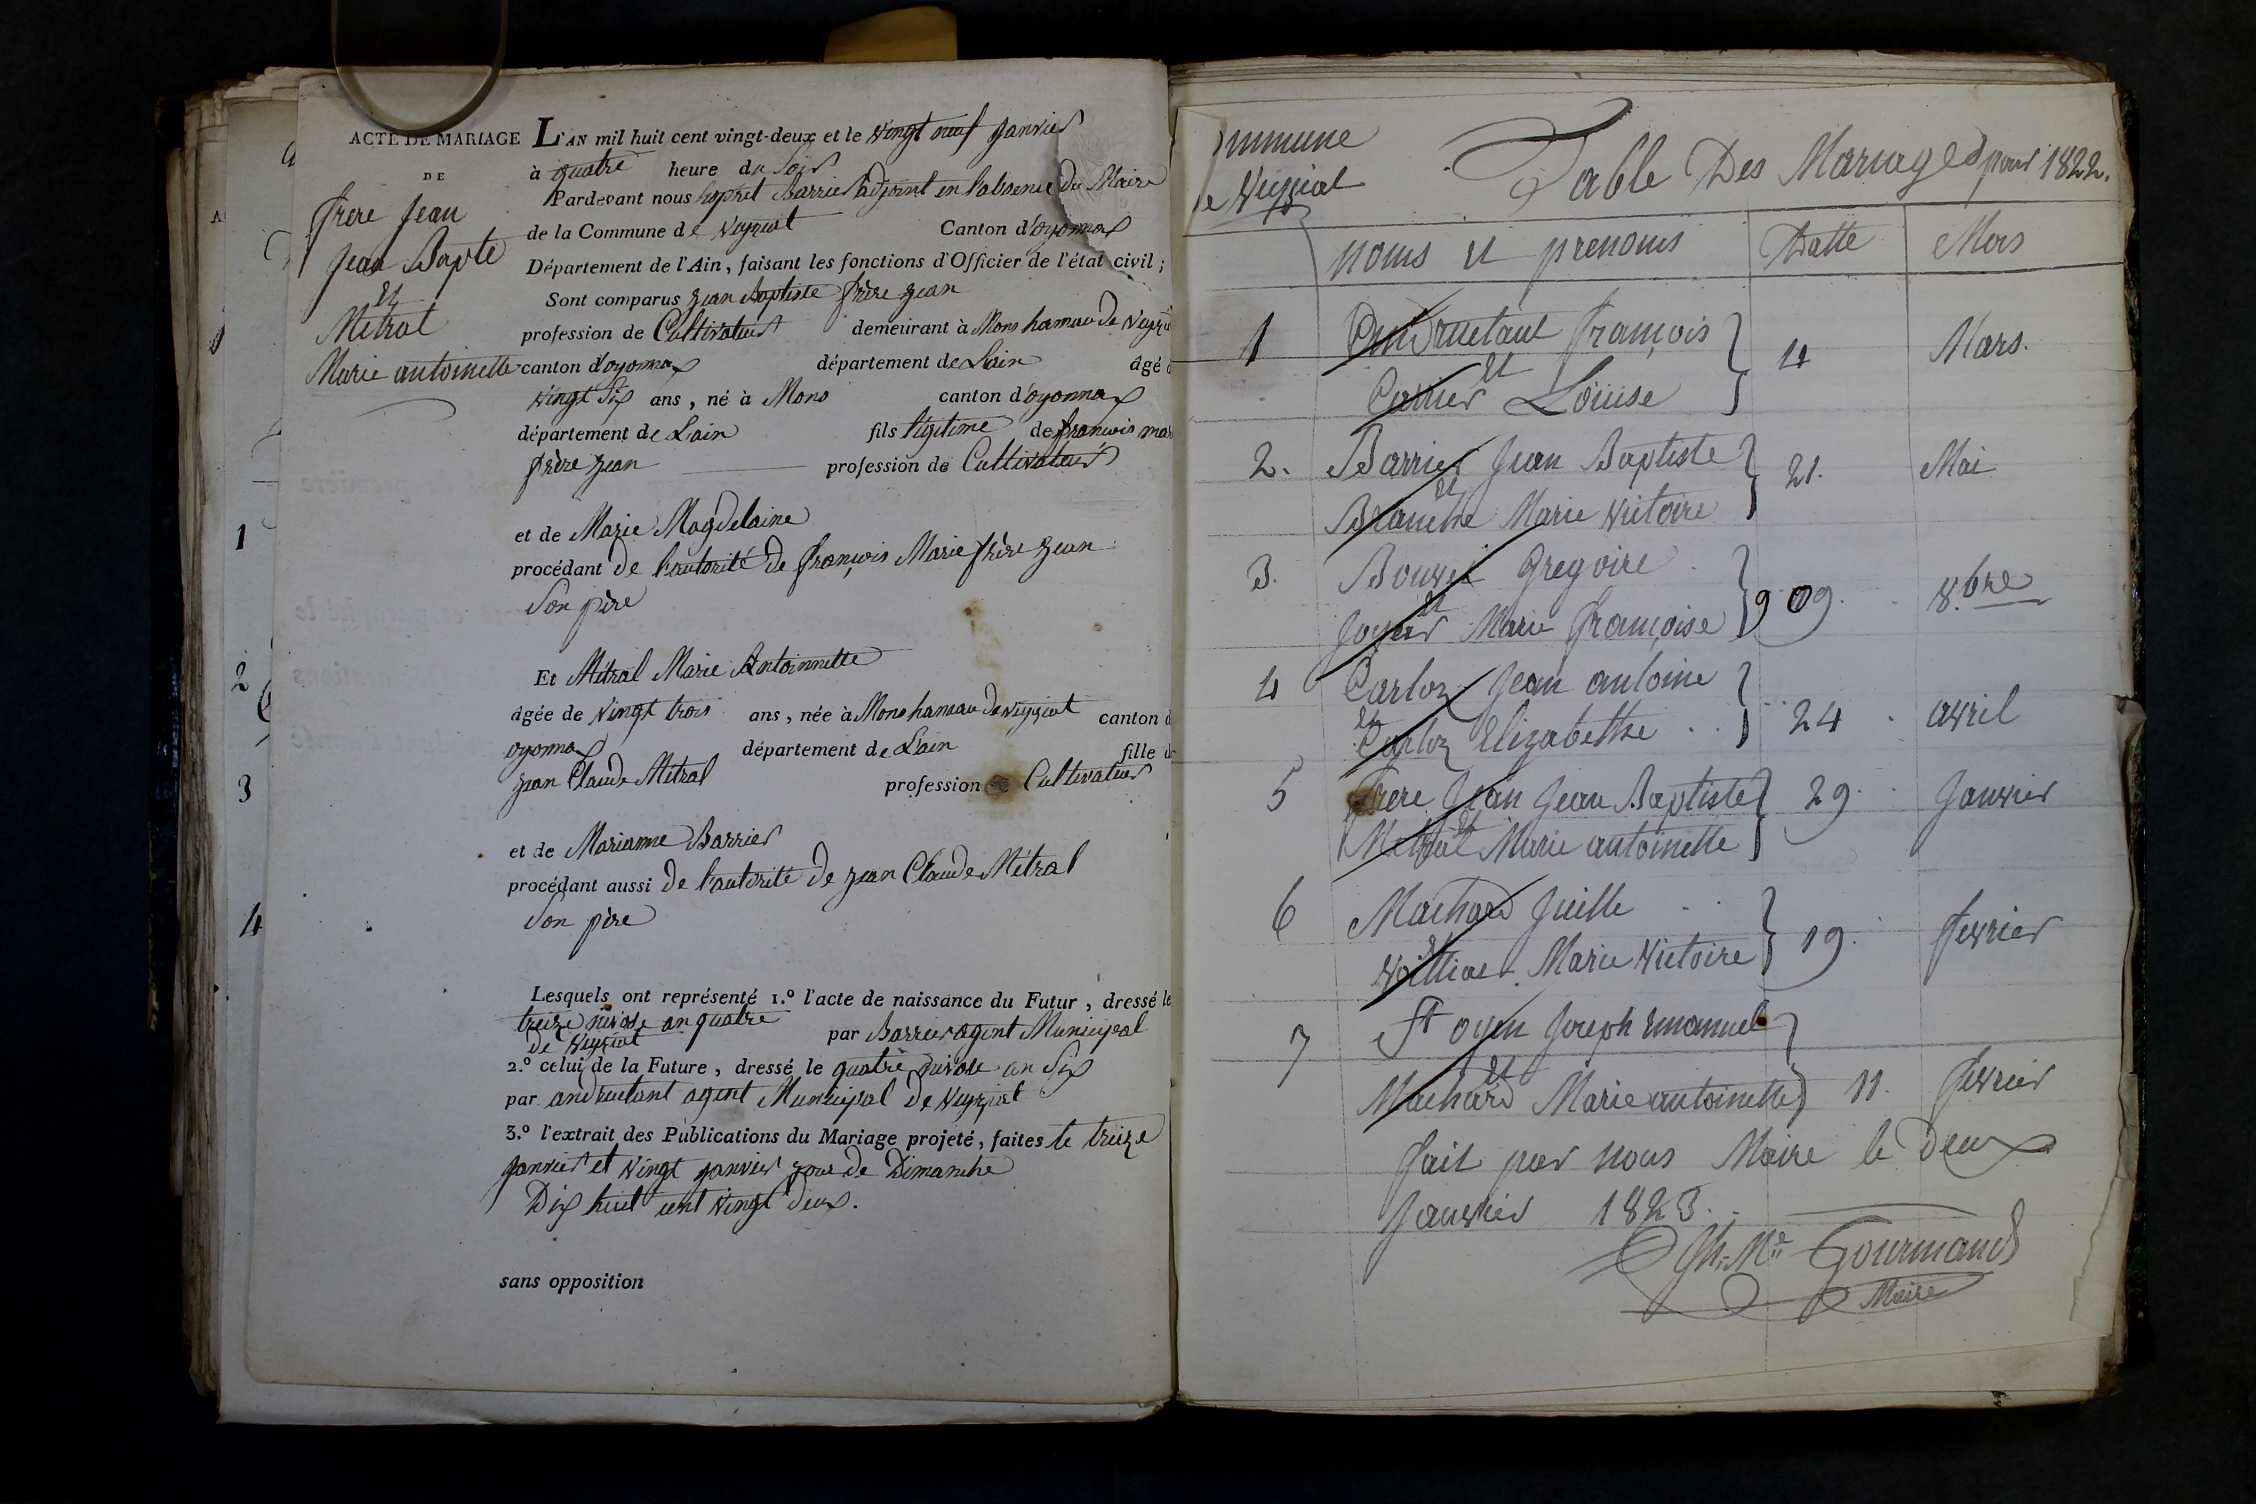 ACTE DE MARIAGE
DE
frere Jean
Jean Bapte
et
Mitral
Marie antoinette
L'AN mil huit cent vingt-deux et le vingt neuf Janvier
à quatre heure du Soir
Pardevant nous Barrier adjoint en l'absence du Maire
de la Commune de Veyziat Canton d'oyonnax
Département de l'Ain, faisant les fonctions d'Officier de l'état civil;
Sont comparus Jean Baptiste frère Jean
profession de Cultivateur demeurant à Mons hamau de
canton d'oyonnax département de Lain âgé
vingt Six ans, né à Mons canton d'oyonnax
département de Lain fils légitime de francois
frère Jean profession de Cultivateur
et de Marie Magdelaine
procédant de l'autorité de françois Marie frère Jean
Son père
Et Mitral Marie Antoinnette
âgée de vingt trois ans, née à Mons hamau de veyziat canton
oyonnax département de Lain fille
Jean Claude Mitral profession de Cultivateur
et de Marianne Barrier
procédant aussi de l'autorité de Jean Claude Mitral
Son père
Lesquels ont représenté 1.º l'acte de naissance du Futur, dressé le
treize nivose an quatre par Barrier agent Municipal
de Veyziat
2.º celui de la Future, dressé le quatre nivose an Six
par andruetant agent Municipal de Veyziat
3.º l'extrait des Publications du Mariage projeté, faites le treize
Janvier et vingt janvier jour de Dimanche
Dix huit cent vingt deux.
sans opposition
1
2
3
4
ommune
e Veyziat
Table Des Mariages pour 1822.
noms et prenoms Datte Mois
1 Andruetant françois
et 4 Mars.
Carrier Louise
2. Barrier Jean Baptiste
et 21. Mai
Branche Marie Victoire
3. Bouvet Gregoire
et 9 09 8.bre
Joyeur Marie françoise
4 Carloz Jean antoine
et 24 avril
Carloz Elizabethe
5 Frere Jean Jean Baptiste
et 29 Janvier
Mitral Marie antoinette
6 Machard
et 19. fevrier
Marie Victoire
7 St oyen Joseph Emanuel
et
Machard Marie antoinette 11. fevrier
fait par nous Maire le Deux
Janvier 1823.
Jh. Me Gourmand
Maire